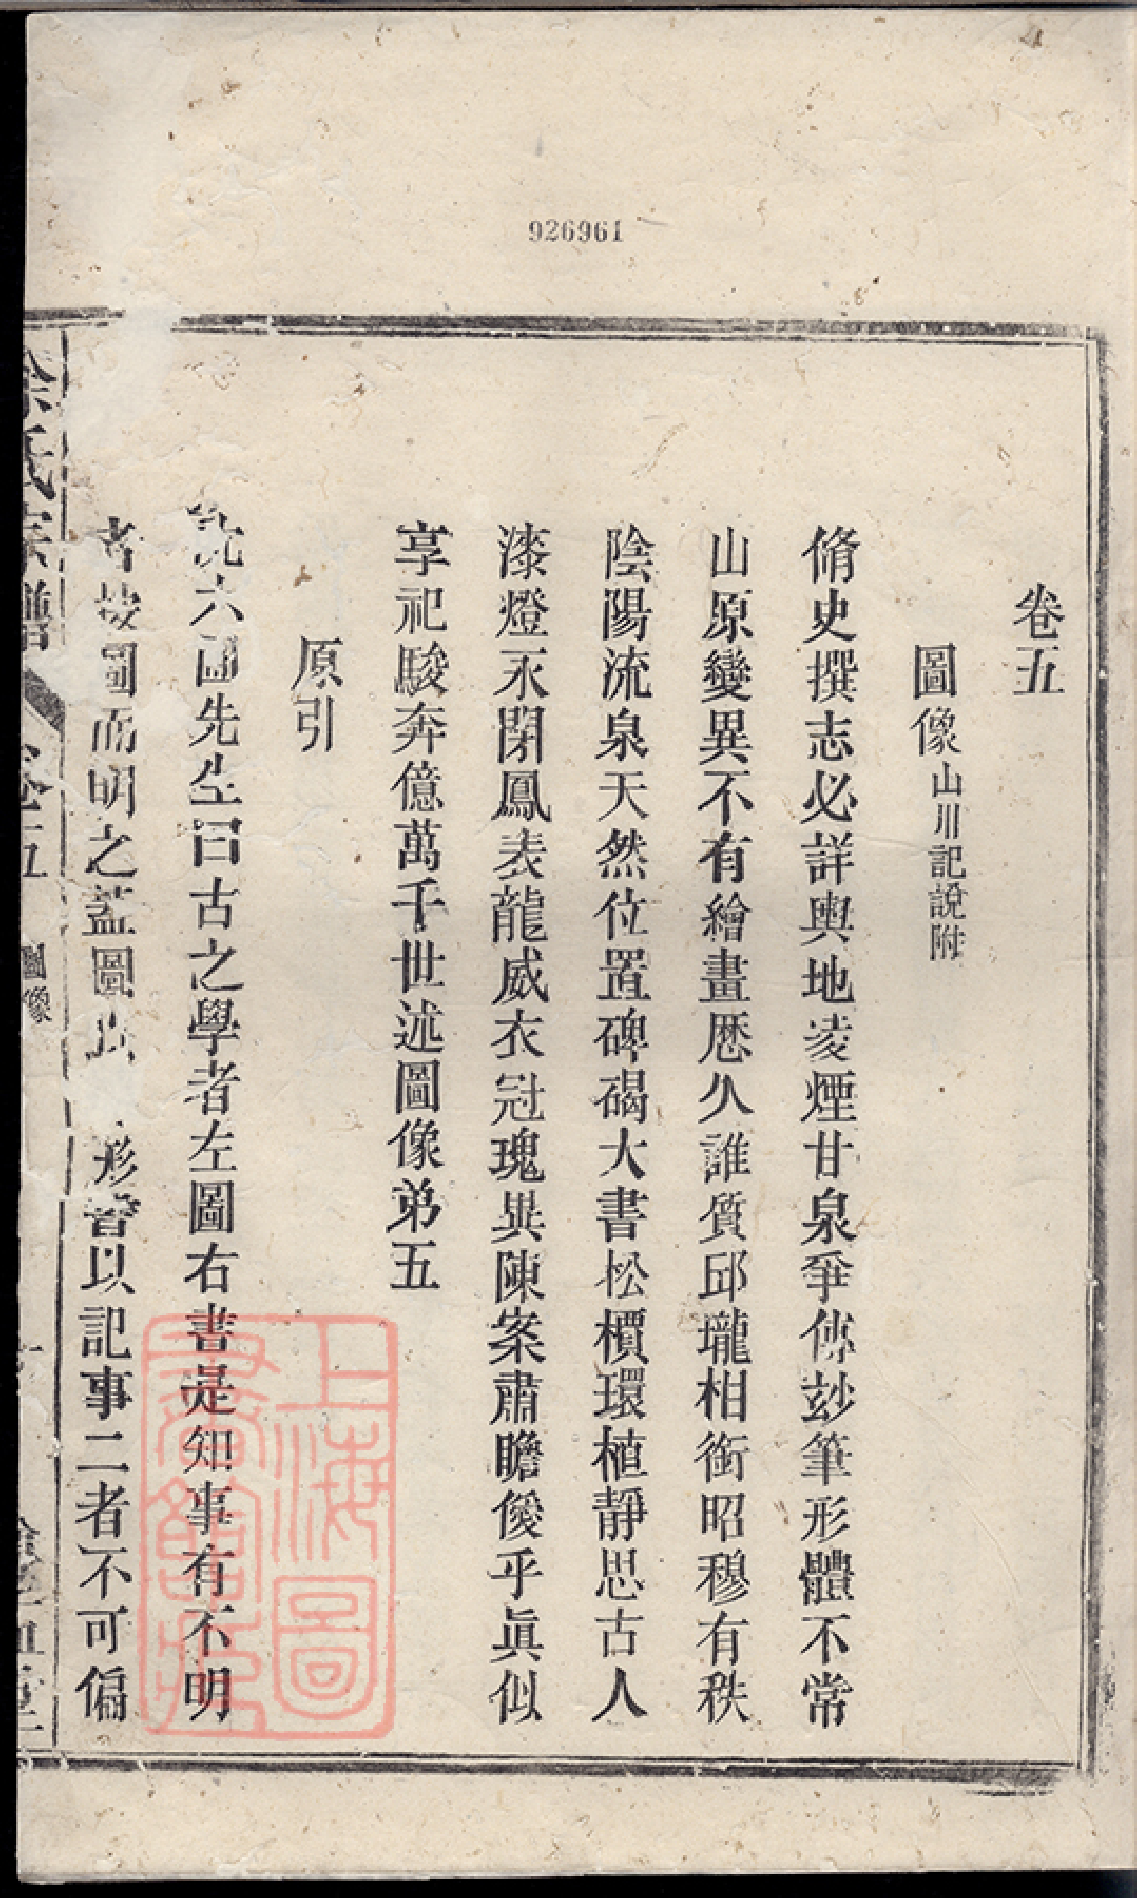 926961
卷五
圖像山川記說附
脩史撰志必詳輿地凌煙甘泉爭傳玅筆形體不常
山原變異不有繪畫歷久誰質邱壠相銜昭穆有秩
陰陽流泉天然位置碑碣大書松檟環植靜思古人
漆燈永閉鳳表龍威衣冠瑰異陳案肅瞻僾乎眞似
享祀駿奔億萬千世述圖像弟五
原引
六圃先生曰古之學者左圖右書是知事有不明
者按圖而明之葢圖以 形書以記事二者不可偏
氏宗譜
卷五
圖像
上海圖書館藏